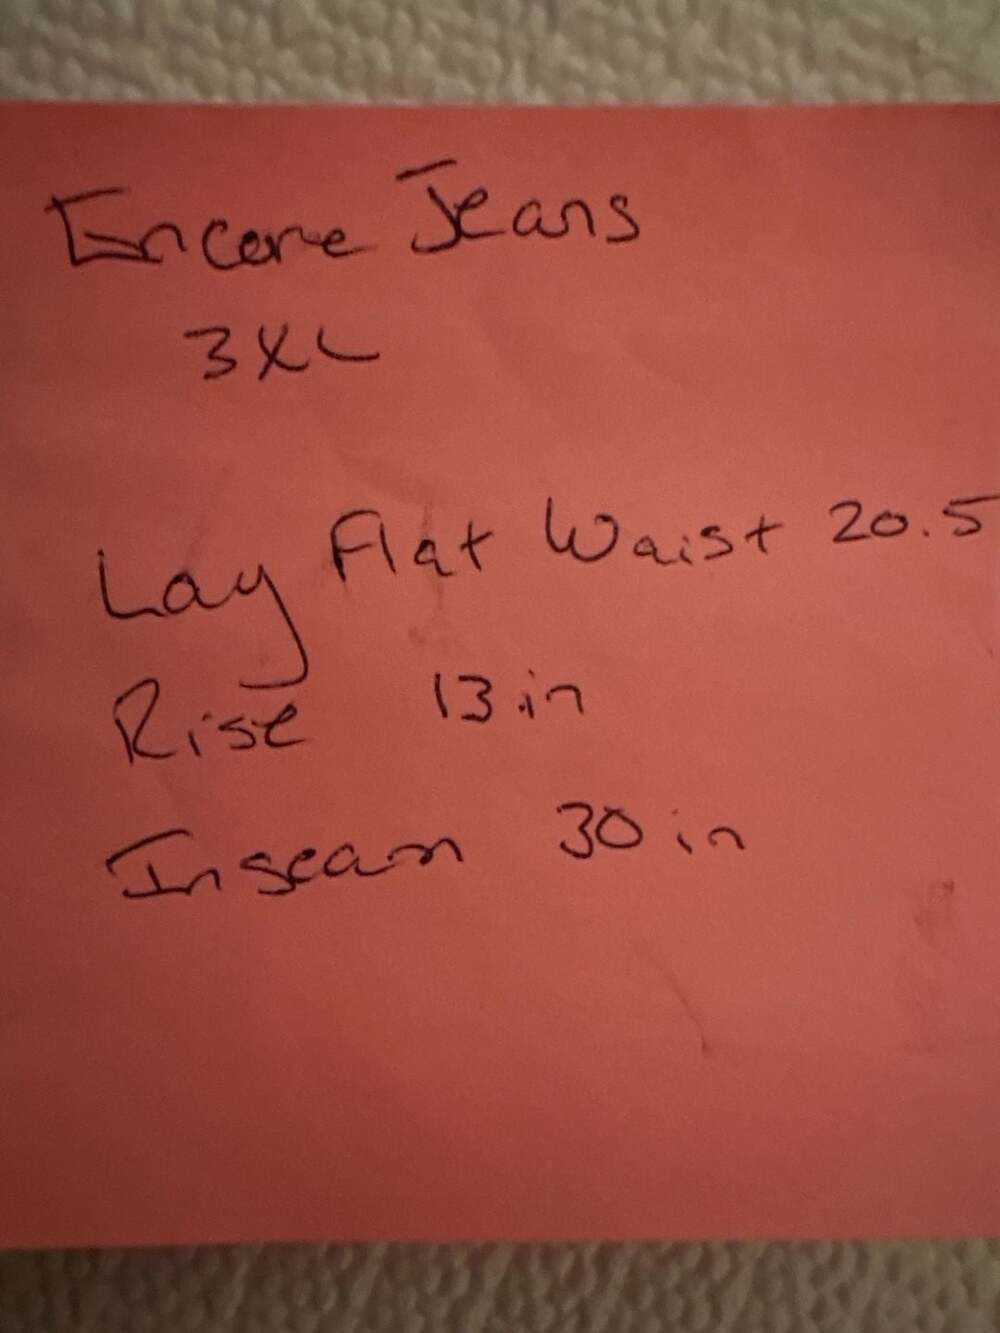 Encore Jeans
3XL
Lay Flat Waist 20.5
Rise 13 in
Inseam 30 in